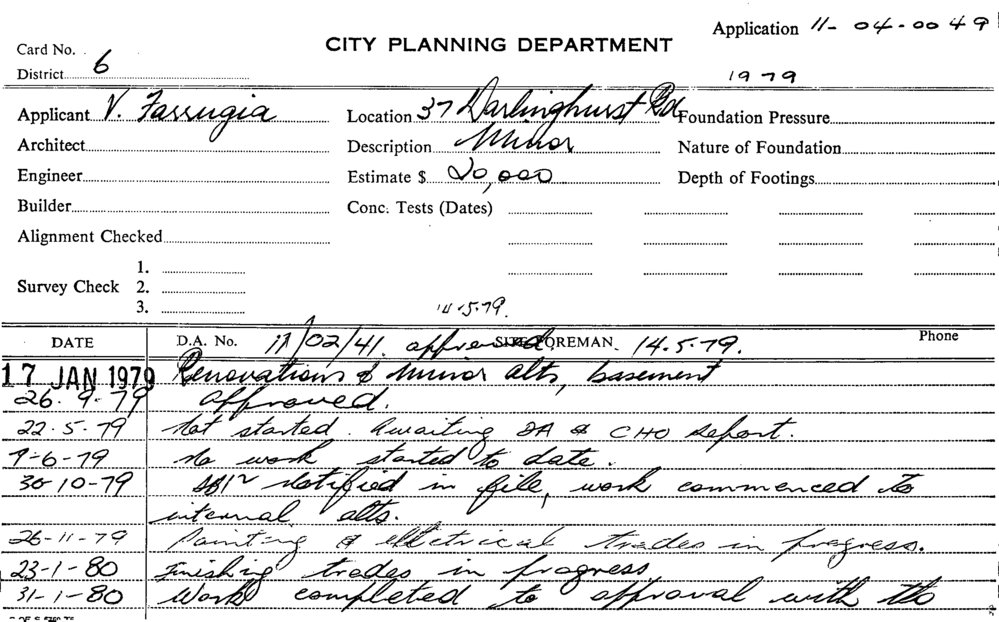 Application 11-04-0049
Card No.
CITY PLANNING DEPARTMENT
District 6
1979
Applicant V. Farrugia Location 37 Darlinghurst Rd Foundation Pressure
Architect Description Minor Nature of Foundation
Engineer Estimate $ 20,000 Depth of Footings
Builder Conc. Tests (Dates)
Alignment Checked
1.
Survey Check 2.
3.
14.5.79.
DATE D.A. No. 11/02/41. approved. SITE FOREMAN. 14.5.79. Phone
17 JAN 1979 Renovations & minor alts, basement
26.9.79 approved.
22.5.79 Not started. Awaiting DA & CHO Report.
7-6-79 No work started to date.
30-10-79 notified in file, work commenced to
internal alts.
26-11-79 Painting & electrical trades in progress.
23-1-80 Finishing trades in progress
31-1-80 Work completed to approval with the